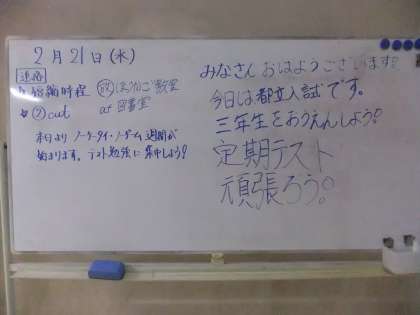 2月21日(水)
連絡
短縮時程 放 ほうかご教室
② cut at 図書室
本日より ノーケータイ・ノーゲーム 週間が
始まります。テスト勉強に集中しよう!
みなさん おはようございます!
今日は都立入試です。
三年生をおうえんしよう!
定期テスト
頑張ろう!